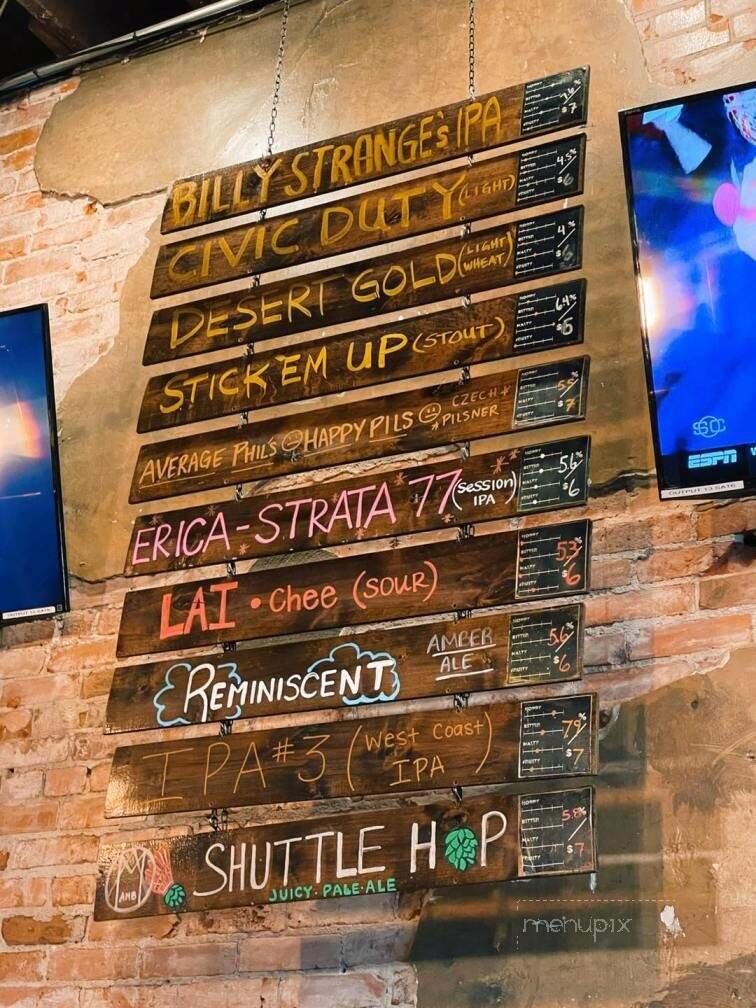 BILLY STRANGE'S IPA
HOPPY
BITTER
MALTY
FRUITY
$7
CIVIC DUTY (LIGHT)
4.5%
$6
DESERT GOLD (LIGHT WHEAT)
4%
STICK'EM UP (STOUT)
6.4%
$6
AVERAGE PHIL'S HAPPY PILS CZECH PILSNER
5.5%
$7
ERICA-STRATA 77 (SESSION IPA)
5.6%
$6
LAI • Chee (SOUR)
5.3%
$6
REMINISCENT AMBER ALE
5.6%
$6
IPA #3 (West Coast) IPA
7%
$7
AMB
SHUTTLE HOP
JUICY • PALE • ALE
5.8%
$7
SC
ESPN
OUTPUT 13 SATE
menupix